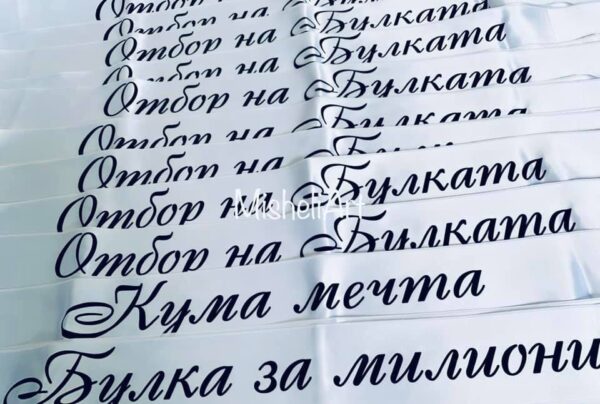 Отбор на Булката
Отбор на Булката
Отбор на Булката
Отбор на Булката
Отбор на Булката
Отбор на Булката
Отбор на
Отбор на Булката
MisheliArt
Отбор на Булката
Кума мечта
Булка за милиони